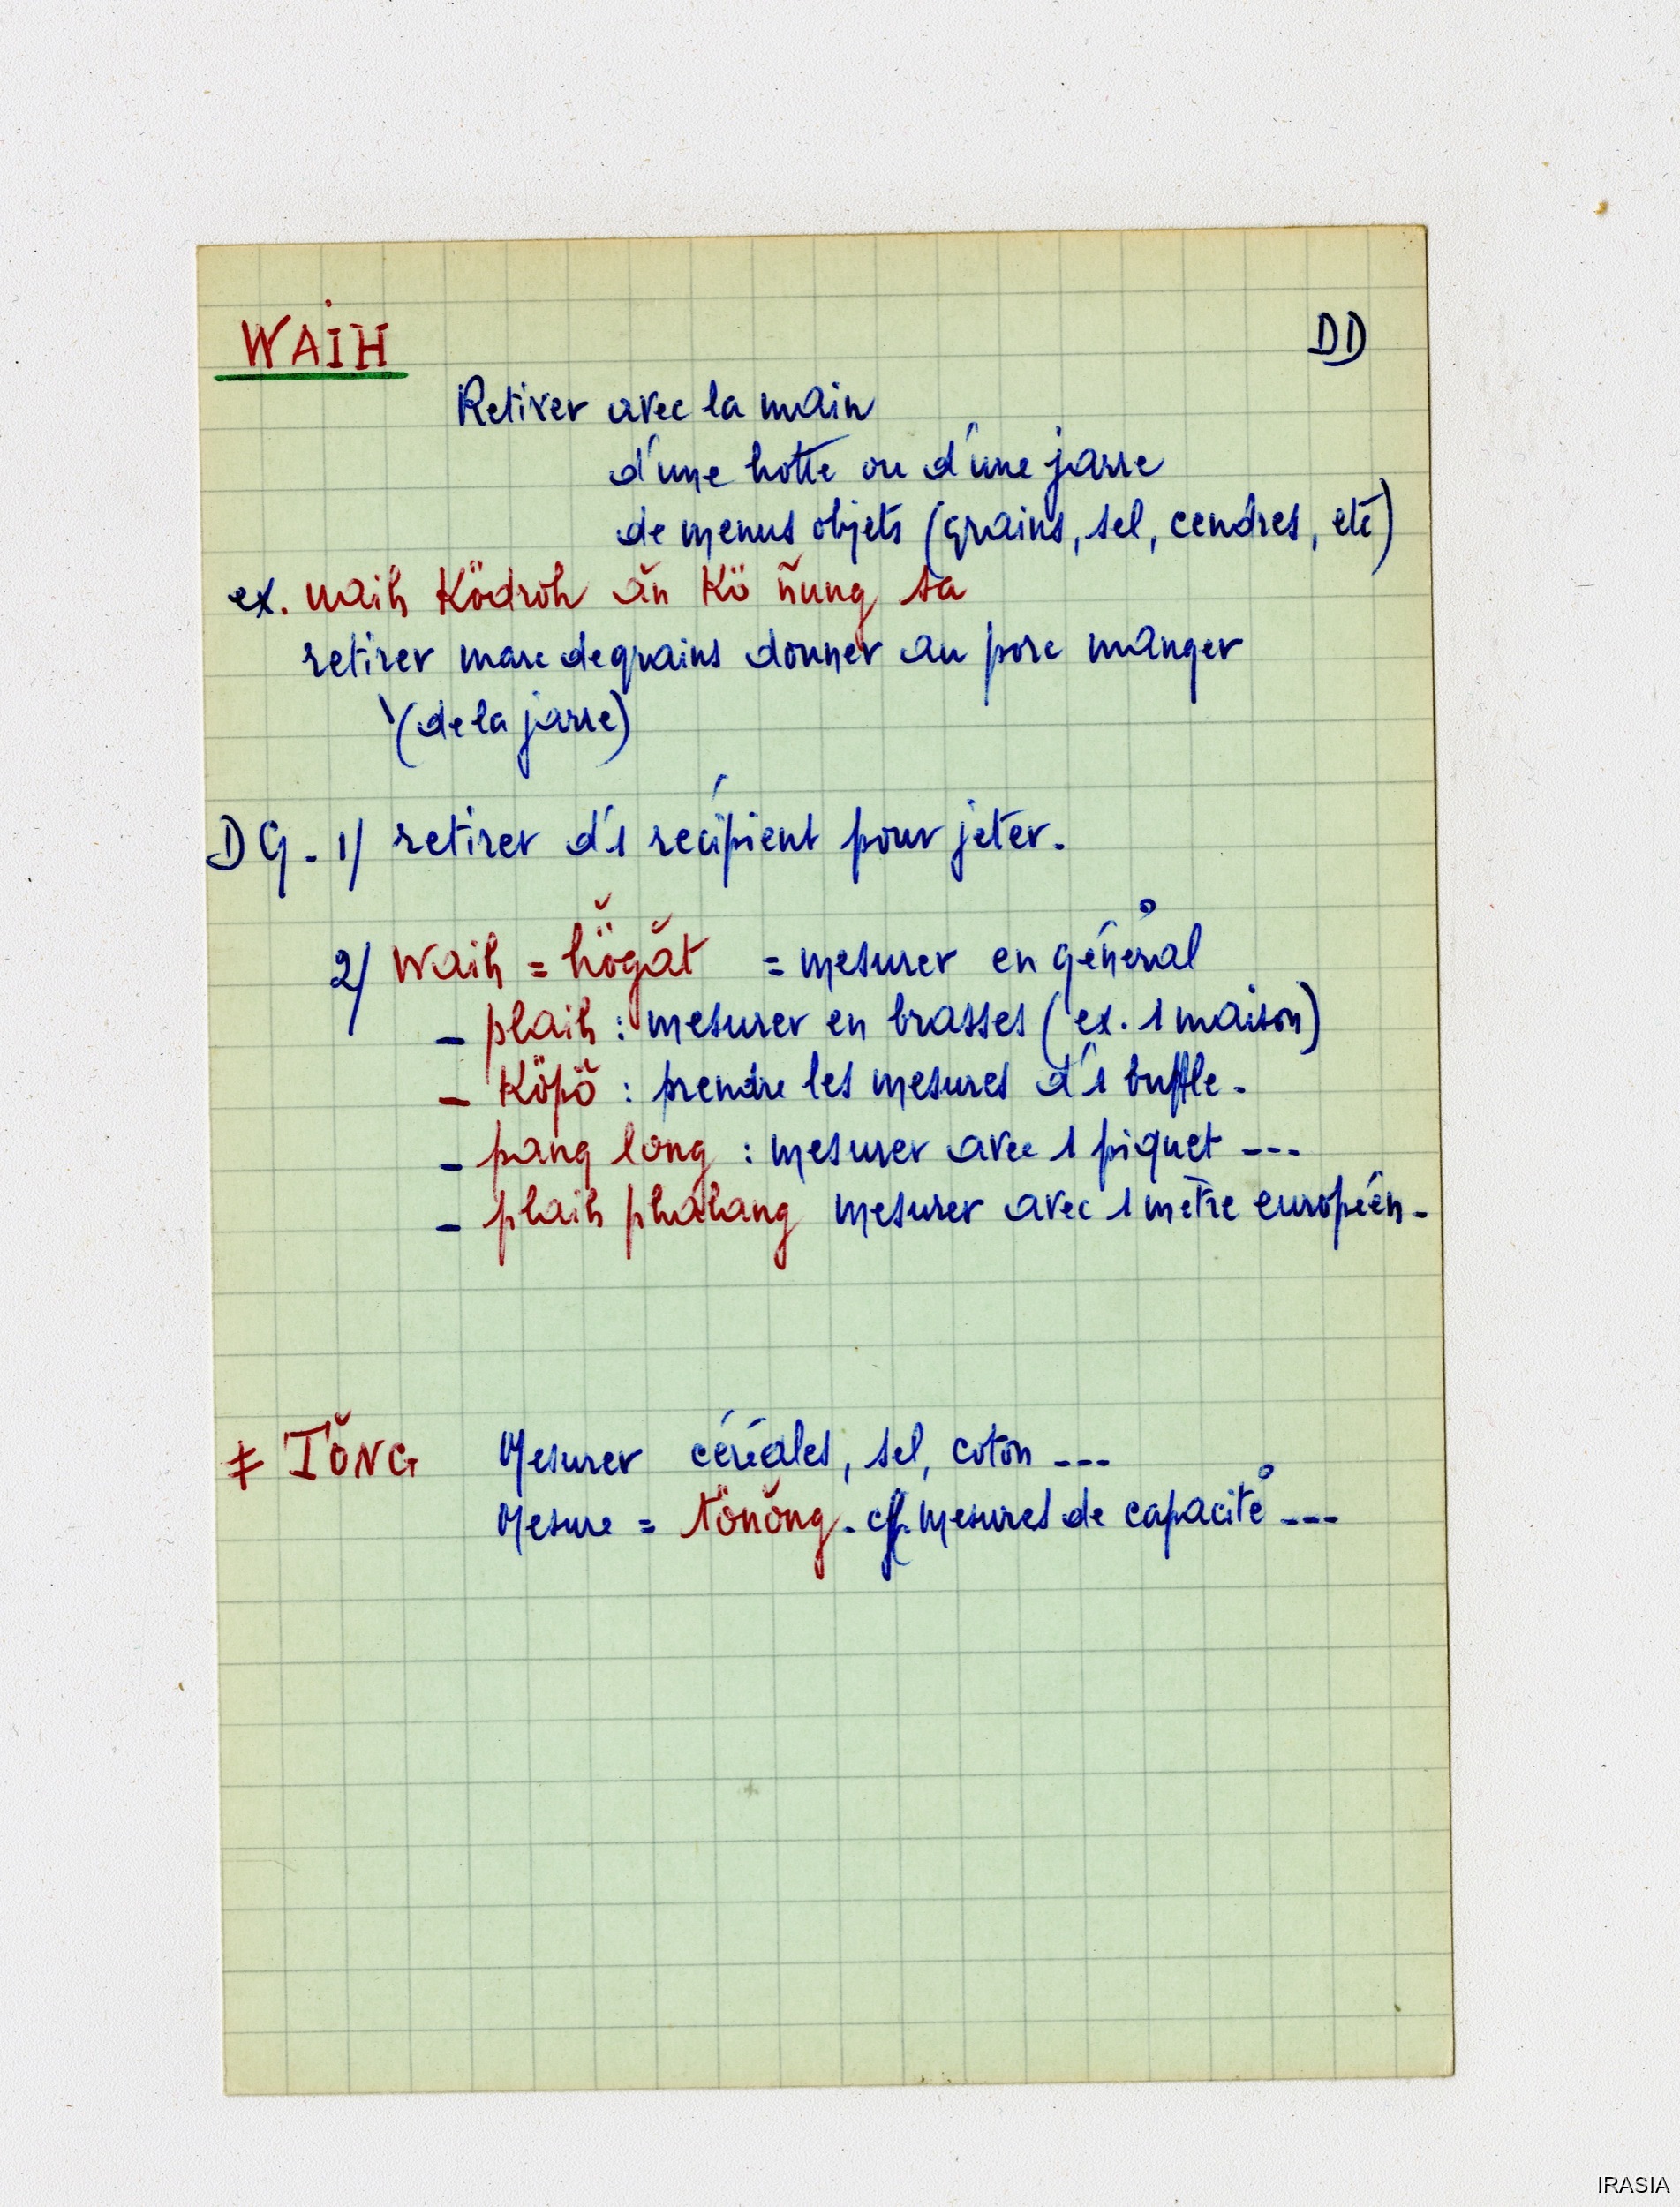 WAIH DD
Retirer avec la main
d'une hotte ou d'une jarre
de menus objets (grains, sel, cendres, etc)
ex. waih Ködroh ăn Kö ñung sa
retirer marc de grains donner au porc manger
(de la jarre)
DG. 1/ retirer d'1 récipient pour jeter.
2/ Waih = hö̆găt = mesurer en général
- plaih : mesurer en brasses (ex. 1 maison)
- Köpö̆ : prendre les mesures d'1 buffle.
- pang long : mesurer avec 1 piquet ---
- plaih phalang mesurer avec 1 mètre européen.
≠ TŎNG Mesurer céréales, sel, coton ---
Mesure = tönŏng. cf. mesures de capacité ---
IRASIA